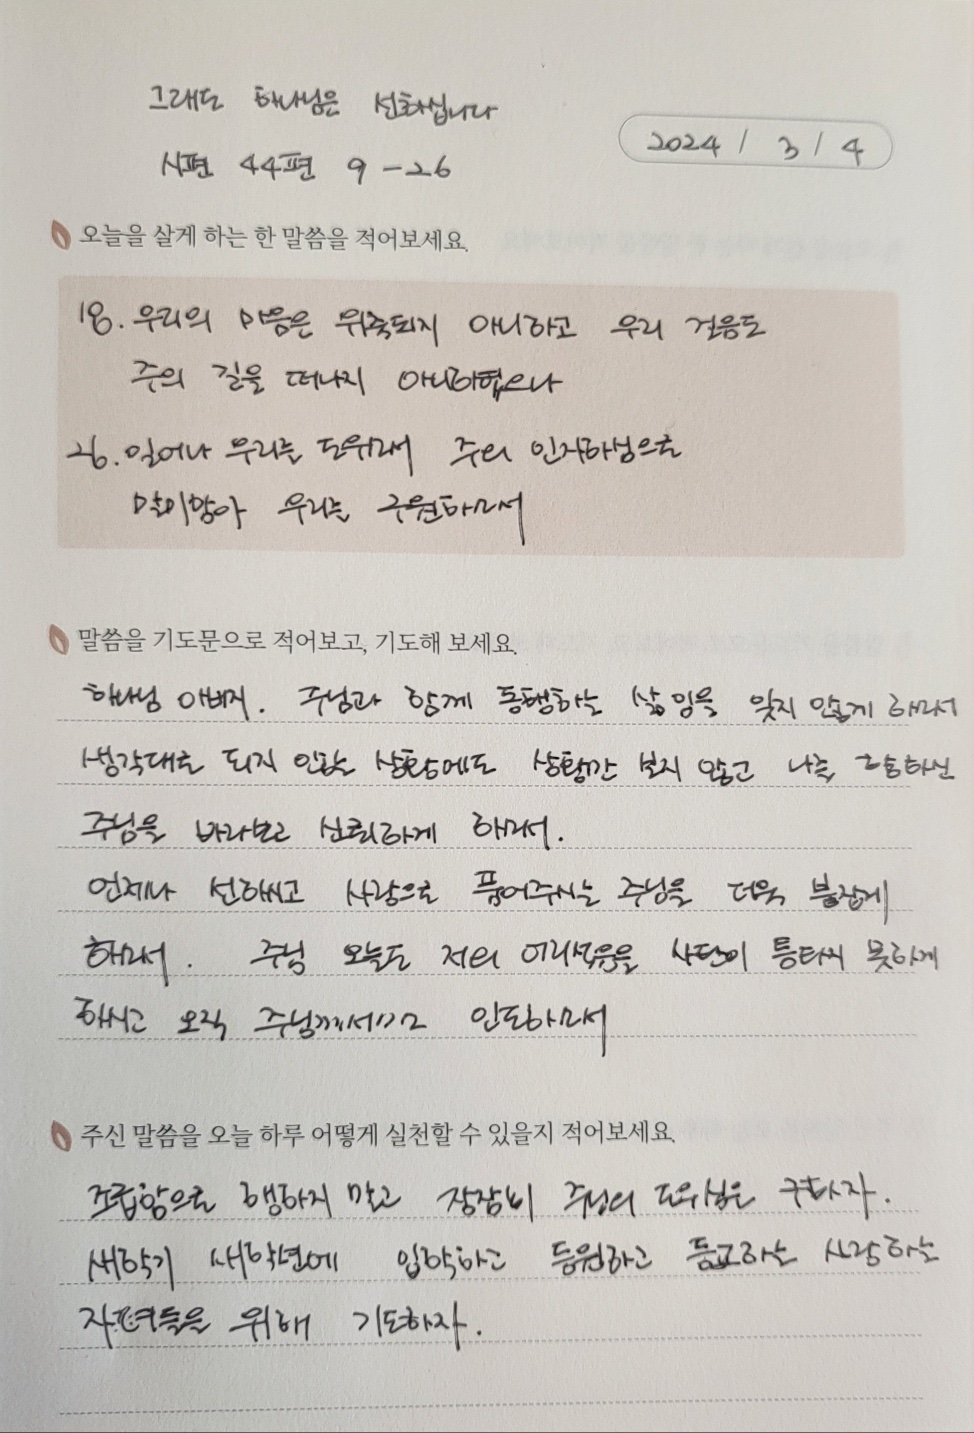 그래도 하나님은 선하십니다
2024 / 3 / 4
시편 44편 9-26
오늘을 살게 하는 한 말씀을 적어보세요.
18. 우리의 마음은 위축되지 아니하고 우리 걸음도
주의 길을 떠나지 아니하였으나
26. 일어나 우리를 도우소서 주의 인자하심으로
말미암아 우리를 구원하소서
말씀을 기도문으로 적어보고, 기도해 보세요.
하나님 아버지. 주님과 함께 동행하는 삶임을 잊지 않게 하소서
생각대로 되지 않는 상황에도 상황만 보지 않고 나를 구원하신
주님을 바라보고 신뢰하게 하소서.
언제나 선하시고 사랑으로 품어주시는 주님을 더욱 붙잡게
하소서. 주님 오늘도 저의 어리석음을 사단이 틈타지 못하게
하시고 오직 주님께서만 인도하소서
주신 말씀을 오늘 하루 어떻게 실천할 수 있을지 적어보세요.
조급함으로 행하지 말고 잠잠히 주님의 도우심을 구하자.
새학기 새학년에 입학하고 등원하고 등교하는 사랑하는
자녀들을 위해 기도하자.